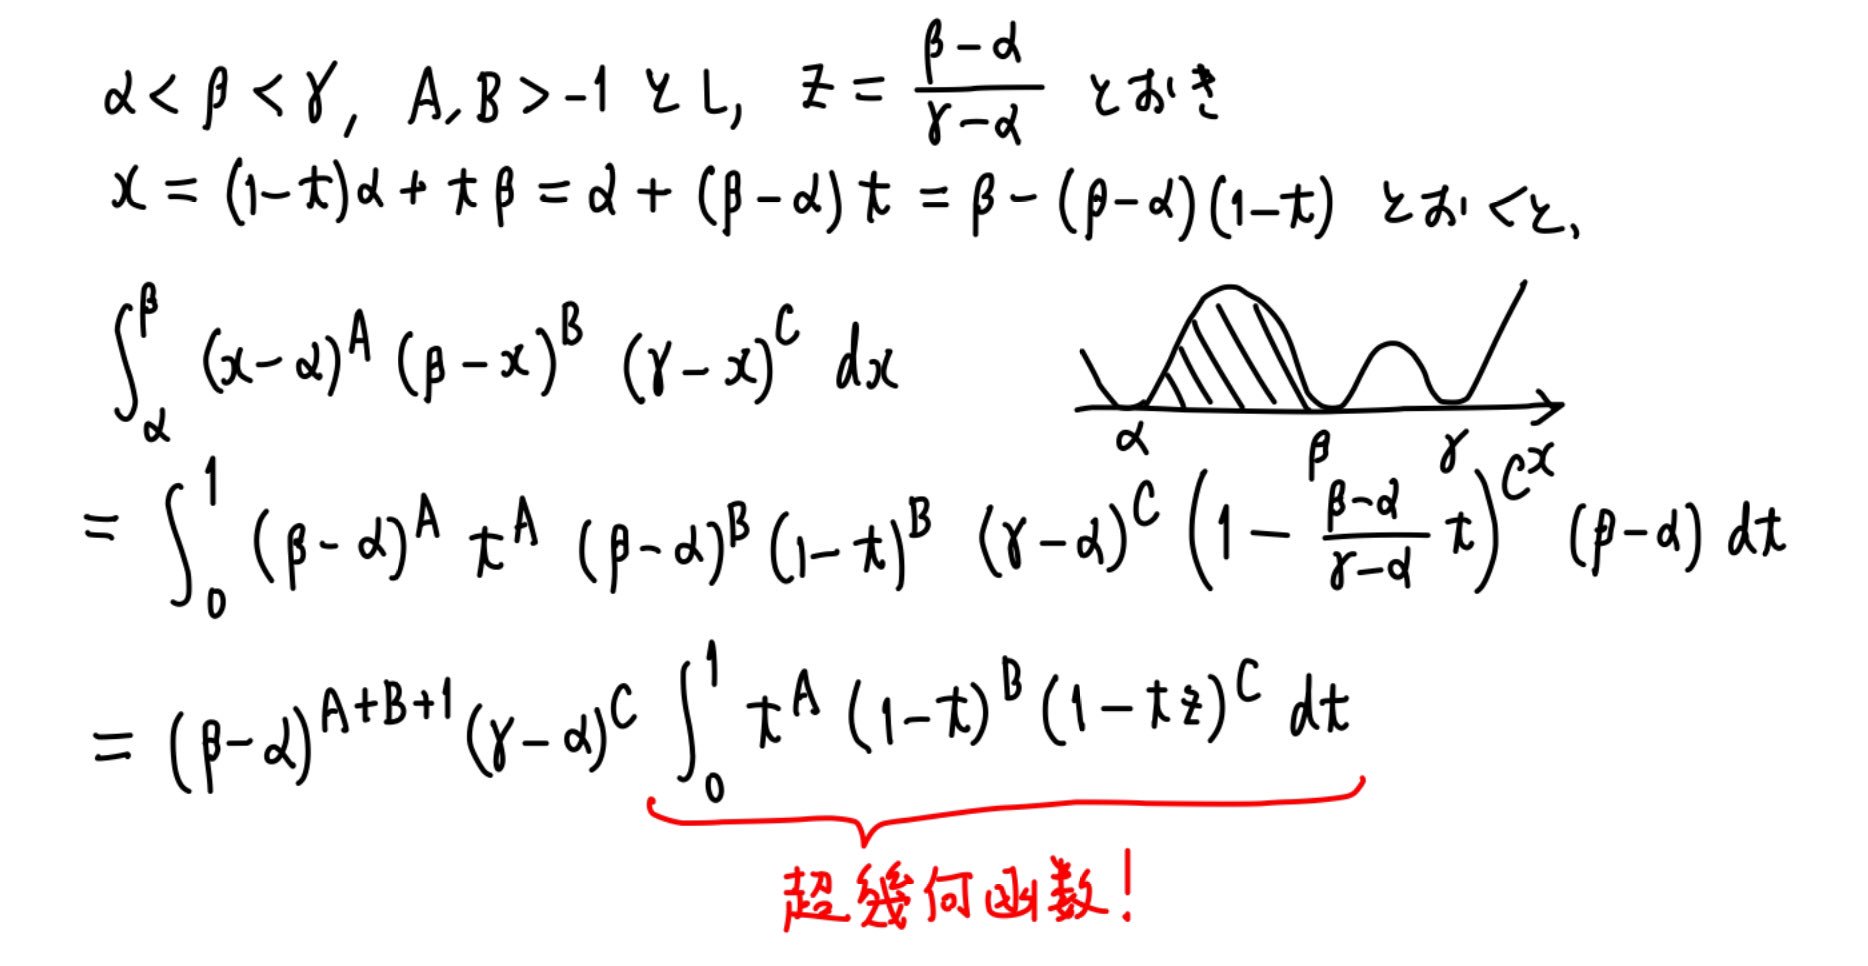 α < β < γ, A, B > -1 とし, z = \frac{β-α}{γ-α} とおき
x = (1-t)α + tβ = α + (β-α)t = β - (β-α)(1-t) とおくと、
∫_α^β (x-α)^A (β-x)^B (γ-x)^C dx
α β γ x
= ∫_0^1 (β-α)^A t^A (β-α)^B (1-t)^B (γ-α)^C (1 - \frac{β-α}{γ-α} t)^C (β-α) dt
= (β-α)^{A+B+1} (γ-α)^C ∫_0^1 t^A (1-t)^B (1-tz)^C dt
超幾何函数!